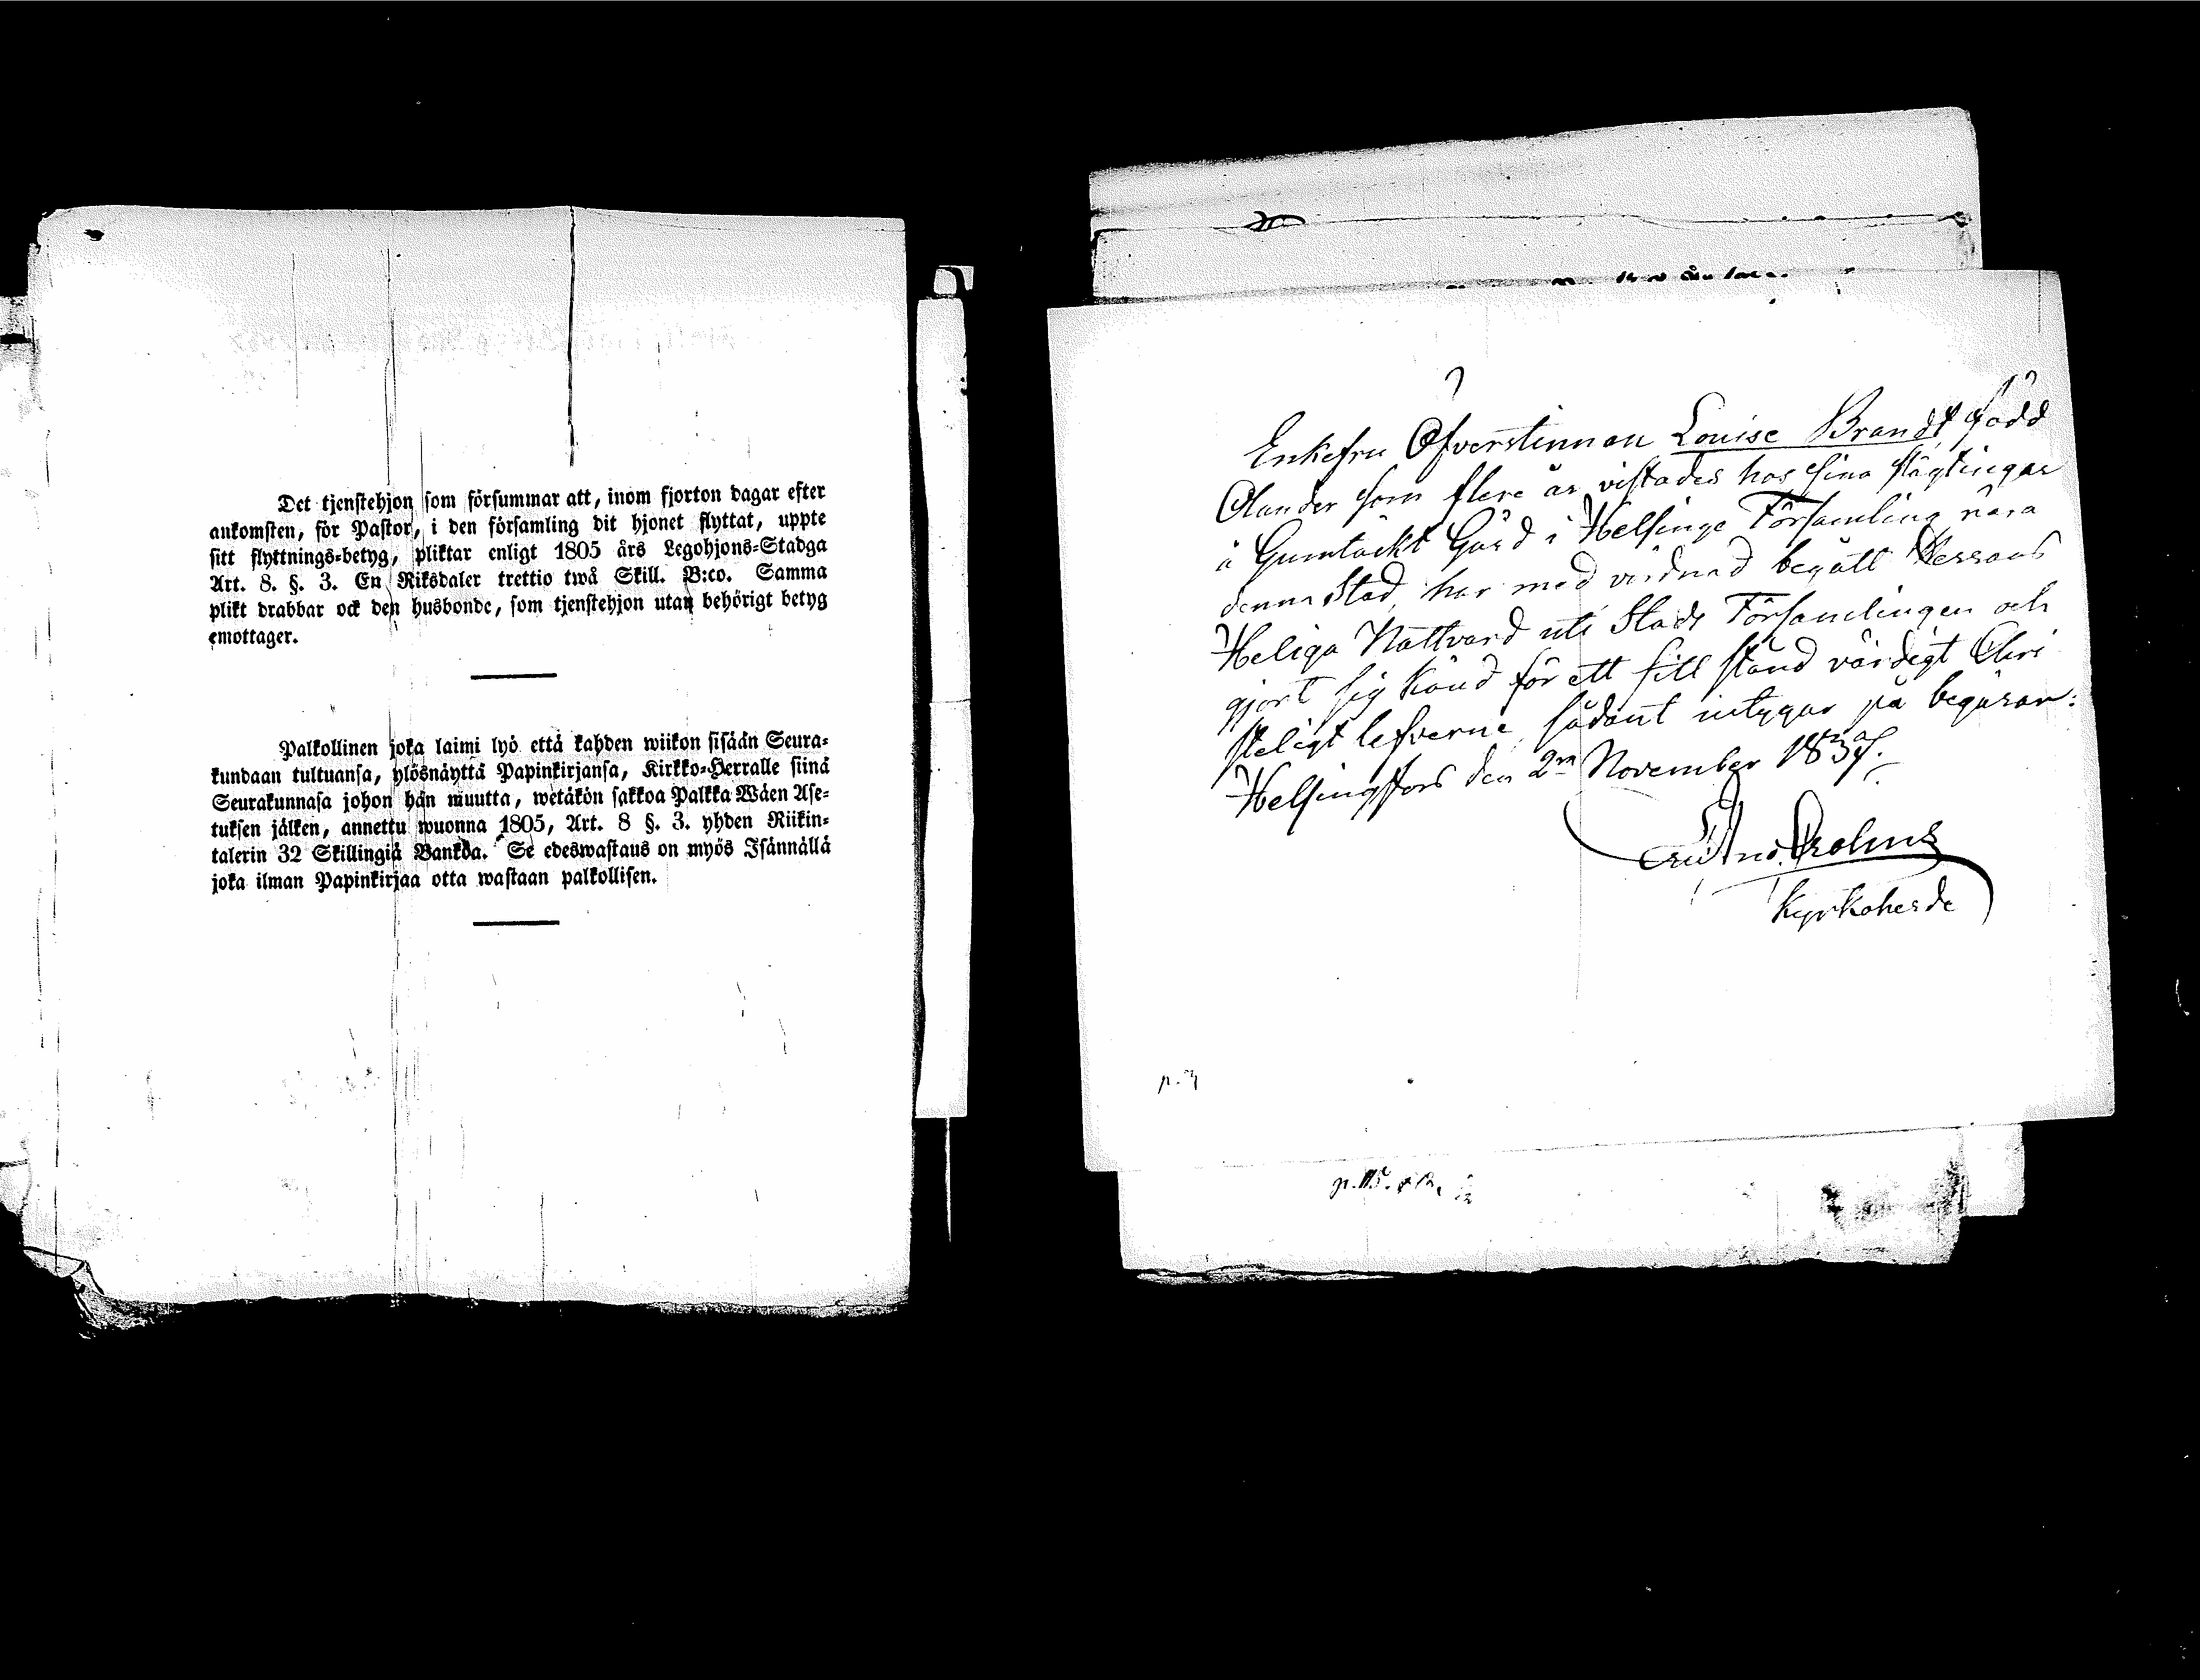 Det tjenstehjon som försummar att, inom fjorton dagar efter
ankomsten, för Pastor, i den församling dit hjonet flyttat, uppte
sitt flyttnings-betyg, pliktar enligt 1805 års Legohjons-Stadga
Art. 8. §. 3. En Riksdaler trettio twå Skill. B:co. Samma
plikt drabbar ock den husbonde, som tjenstehjon utan behörigt betyg
emottager.
Palkollinen joka laimi lyö että kahden wiikon sisään Seura-
kundaan tultuansa, ylösnäyttä Papinkirjansa, Kirkko-Herralle siinä
Seurakunnasa johon hän muutta, wetäkön sakkoa Palkka Wäen Ase-
tuksen jälken, annettu wuonna 1805, Art. 8 §. 3. yhden Riikin-
talerin 32 Skillingiä Bankda. Se edeswastaus on myös Isännällä
joka ilman Papinkirjaa otta wastaan palkollisen.
Enkefru Öfverstinnan Louise Brandt född
Olander som flere år vistades hos sina slägtingar
å Gumtäckt Gård i Helsinge Församling nära
denna Stad, har med vördnad begått Herrans
Heliga Nattvard uti Stads Församlingen och
gjort sig känd för ett sitt stånd värdigt Chri
steligt lefverne, sådant intygar på begäran:
Helsingfors den 2n November 1837.
Kyrkoherde